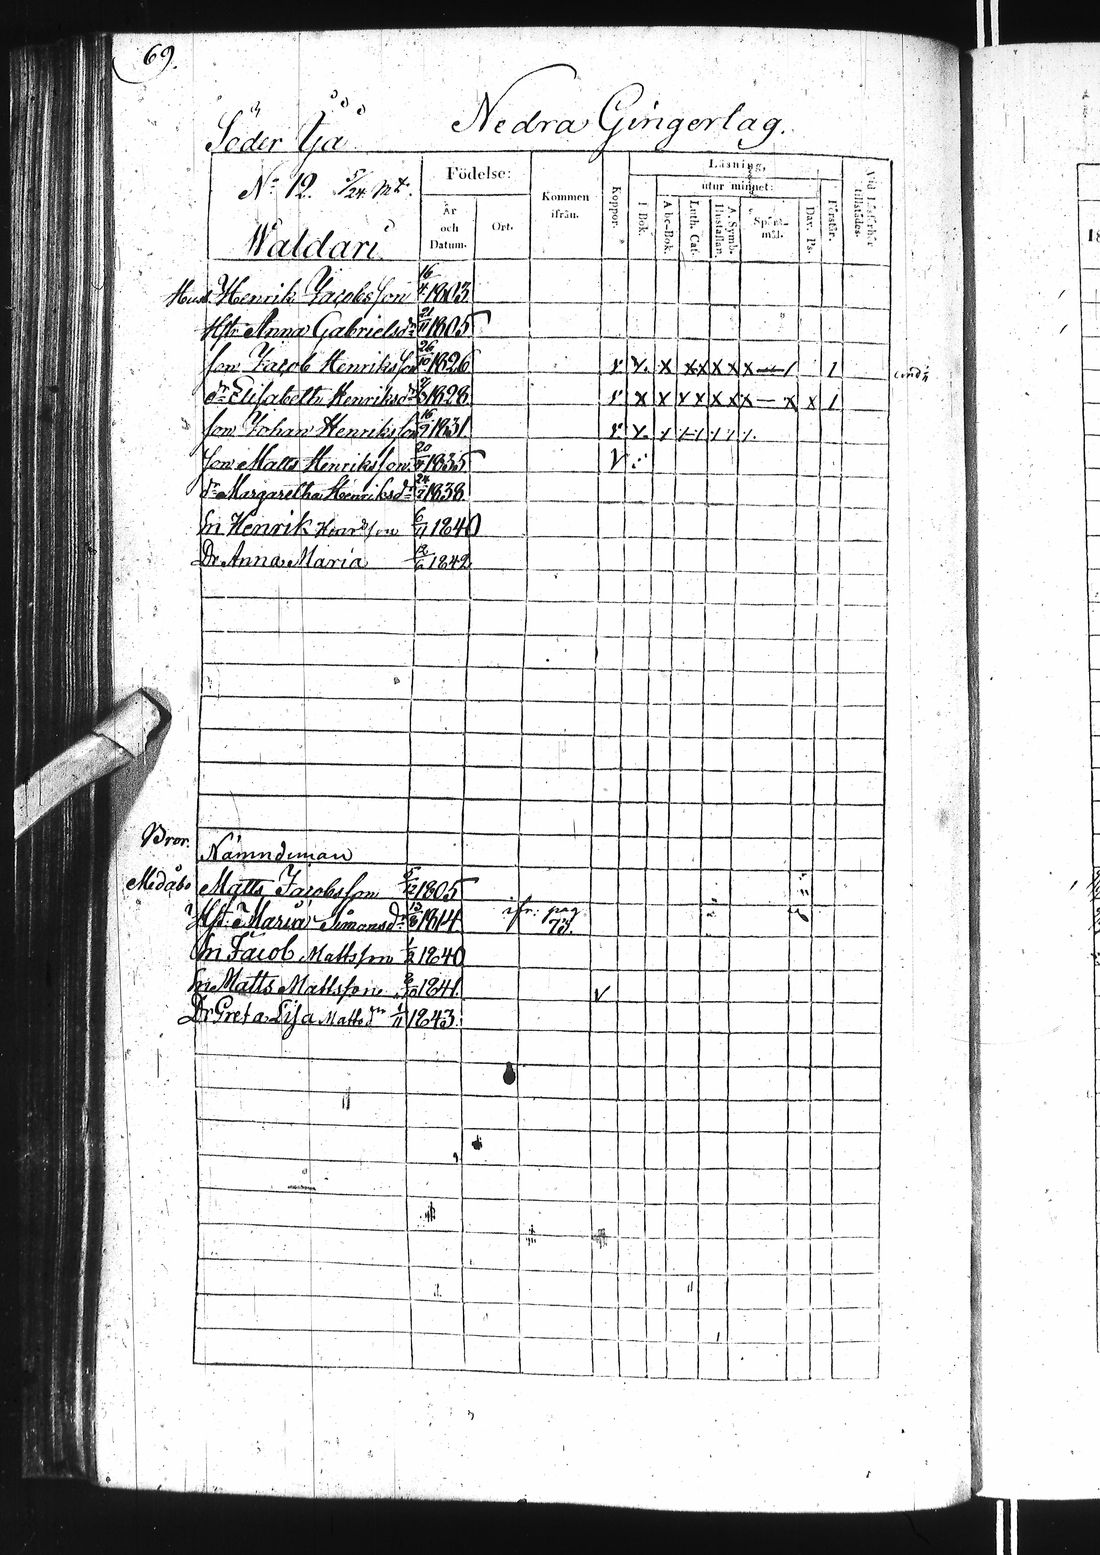 69.
Nedra Gingerlag.
Söder Yja
No 12. 5/24 mt.
Waldari
Födelse:
År och Datum.
Ort.
Kommen ifrån.
Koppor.
Läsning,
utur minnet:
I Bok.
Abc-Bok.
Luth. Cat.
A. Symb. Hustaflan.
Spörsmål.
Dav. Ps.
Förstår.
Vid Läsförhör tillstådes.
Husb. Henrik Jacobsson 16/4 1803
Hstr Anna Gabrielsdr 21/11 1805
son Jacob Henriksson 26/10 1826
dr Elisabeth Henriksdr 1828
son Johan Henriksson 16/9 1831
son Matts Henriksson 20 1835
dr Margaretha Henriksdr 24 1838
Sn Henrik Henrsson 6/11 1840
Dr Anna Maria 12/6 1842
Bror. Nämndeman
Medåbo Matts Jacobsson 5/12 1805
Hst. Maria Simonsdr 13/3 1814 ifr: pag 73
Sn Jacob Mattsson 1/2 1840
Sn Matts Mattsson 1841
Dr Greta Lisa Mattsdr 1/11 1843